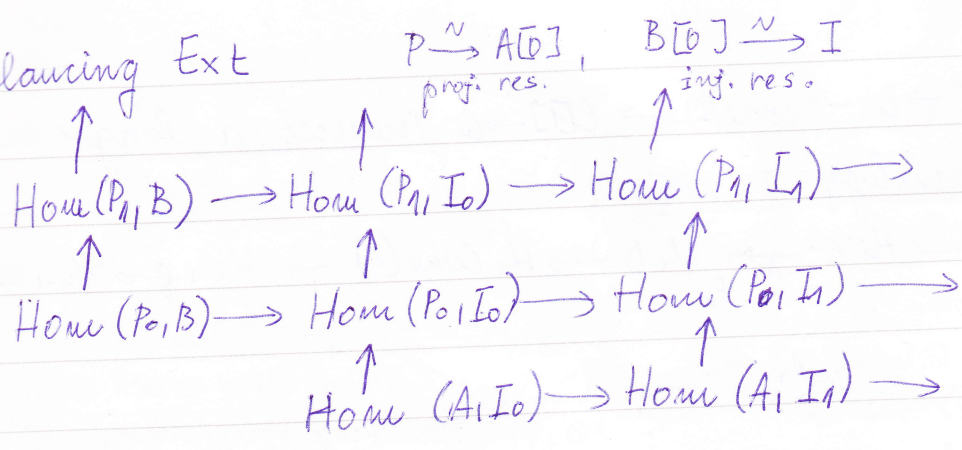 lancing Ext P ~→ A[0], B[0] ~→ I
proj. res. inj. res.
↑ ↑ ↑
Hom(P₁, B) → Hom(P₁, I₀) → Hom(P₁, I₁) →
↑ ↑ ↑
Hom(P₀, B) → Hom(P₀, I₀) → Hom(P₀, I₁) →
↑ ↑
Hom(A, I₀) → Hom(A, I₁) →